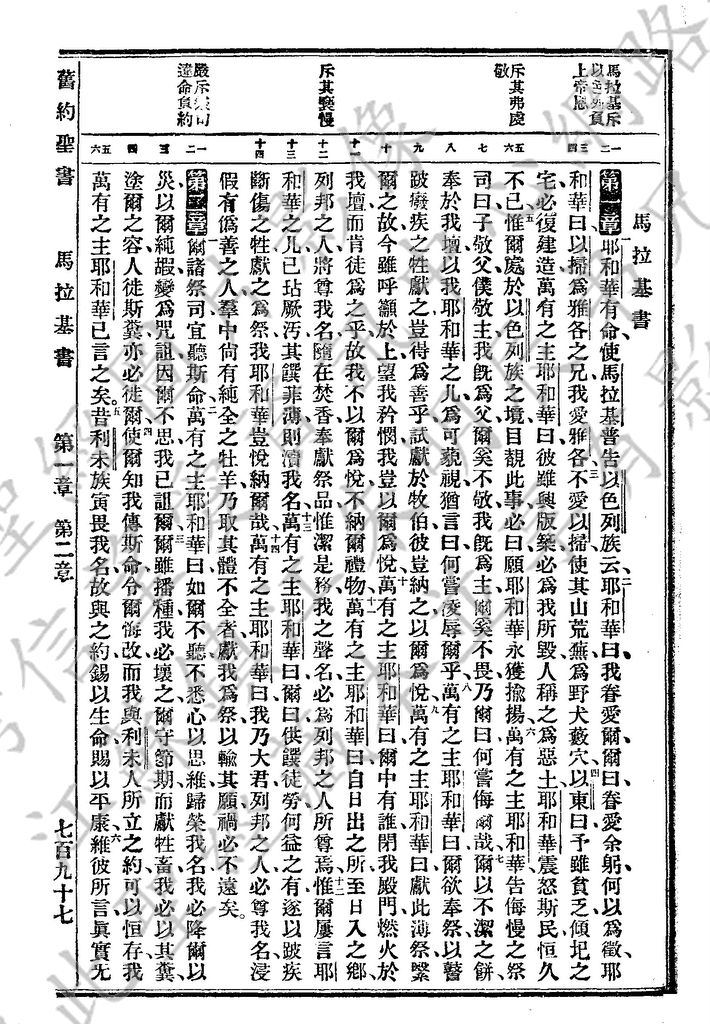 馬拉基書
馬拉基斥
以色列負
上帝恩
斥其弗虔
敬
斥其褻慢
嚴斥祭司
違命負約
一二
三四
五六
七
八
九
十
十一
十二
十三
十四
一二
三
四
五六
第一章 耶和華有命使馬拉基普告以色列族云耶和華曰我眷愛爾爾曰眷愛余躬何以爲徵耶
和華曰以掃爲雅各之兄我愛雅各不愛以掃使其山荒蕪爲野犬藪穴以東曰予雖貧乏傾圮之
宅必復建造萬有之主耶和華曰彼雖興版築必爲我所毀人稱之爲惡土耶和華震怒斯民恒久
不已惟爾處於以色列族之境目覩此事必曰願耶和華永獲揄揚萬有之主耶和華告侮慢之祭
司曰子敬父僕敬主我旣爲父爾奚不敬我旣爲主爾奚不畏乃爾曰何嘗侮爾哉爾以不潔之餅
奉於我壇以我耶和華之几爲可藐視猶言曰何嘗凌辱爾乎萬有之主耶和華曰爾欲奉祭以瞽
跛癈疾之牲獻之豈得爲善乎試獻於牧伯彼豈納之以爾爲悅萬有之主耶和華曰獻此薄祭繄
爾之故今雖呼籲於上望我矜憫我豈以爾爲悅萬有之主耶和華曰爾中有誰閉我殿門燃火於
我壇而肯徒爲之乎故我不以爾爲悅不納爾禮物萬有之主耶和華曰自日出之所至日入之鄉
列邦之人將尊我名隨在焚香奉獻祭品惟潔是務我之聲名必爲列邦之人所尊焉惟爾屢言耶
和華之几已玷厥汚其饌菲薄則瀆我名萬有之主耶和華曰爾曰供饌徒勞何益之有遂以跛疾
斷傷之牲獻之爲祭我耶和華豈悅納爾哉萬有之主耶和華曰我乃大君列邦之人必尊我名浸
假有僞善之人羣中尙有純全之牡羊乃取其體不全者獻我爲祭以輸其願禍必不遠矣。
第二章 爾諸祭司宜聽斯命萬有之主耶和華曰如爾不聽不悉心以思維歸榮我名我必降爾以
災以爾純嘏變爲咒詛因爾不思我已詛爾爾雖播種我必壞之爾守節期而獻牲畜我必以其糞
塗爾之容人徙斯糞亦必徙爾使爾知我傳斯命令爾悔改而我與利未人所立之約可以恒存我
萬有之主耶和華已言之矣。昔利未族寅畏我名故與之約錫以生命賜以平康維彼所言眞實无
舊約聖書 馬拉基書 第一章 第二章 七百九十七